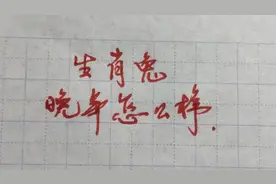 生肖兔
晚年怎么样.